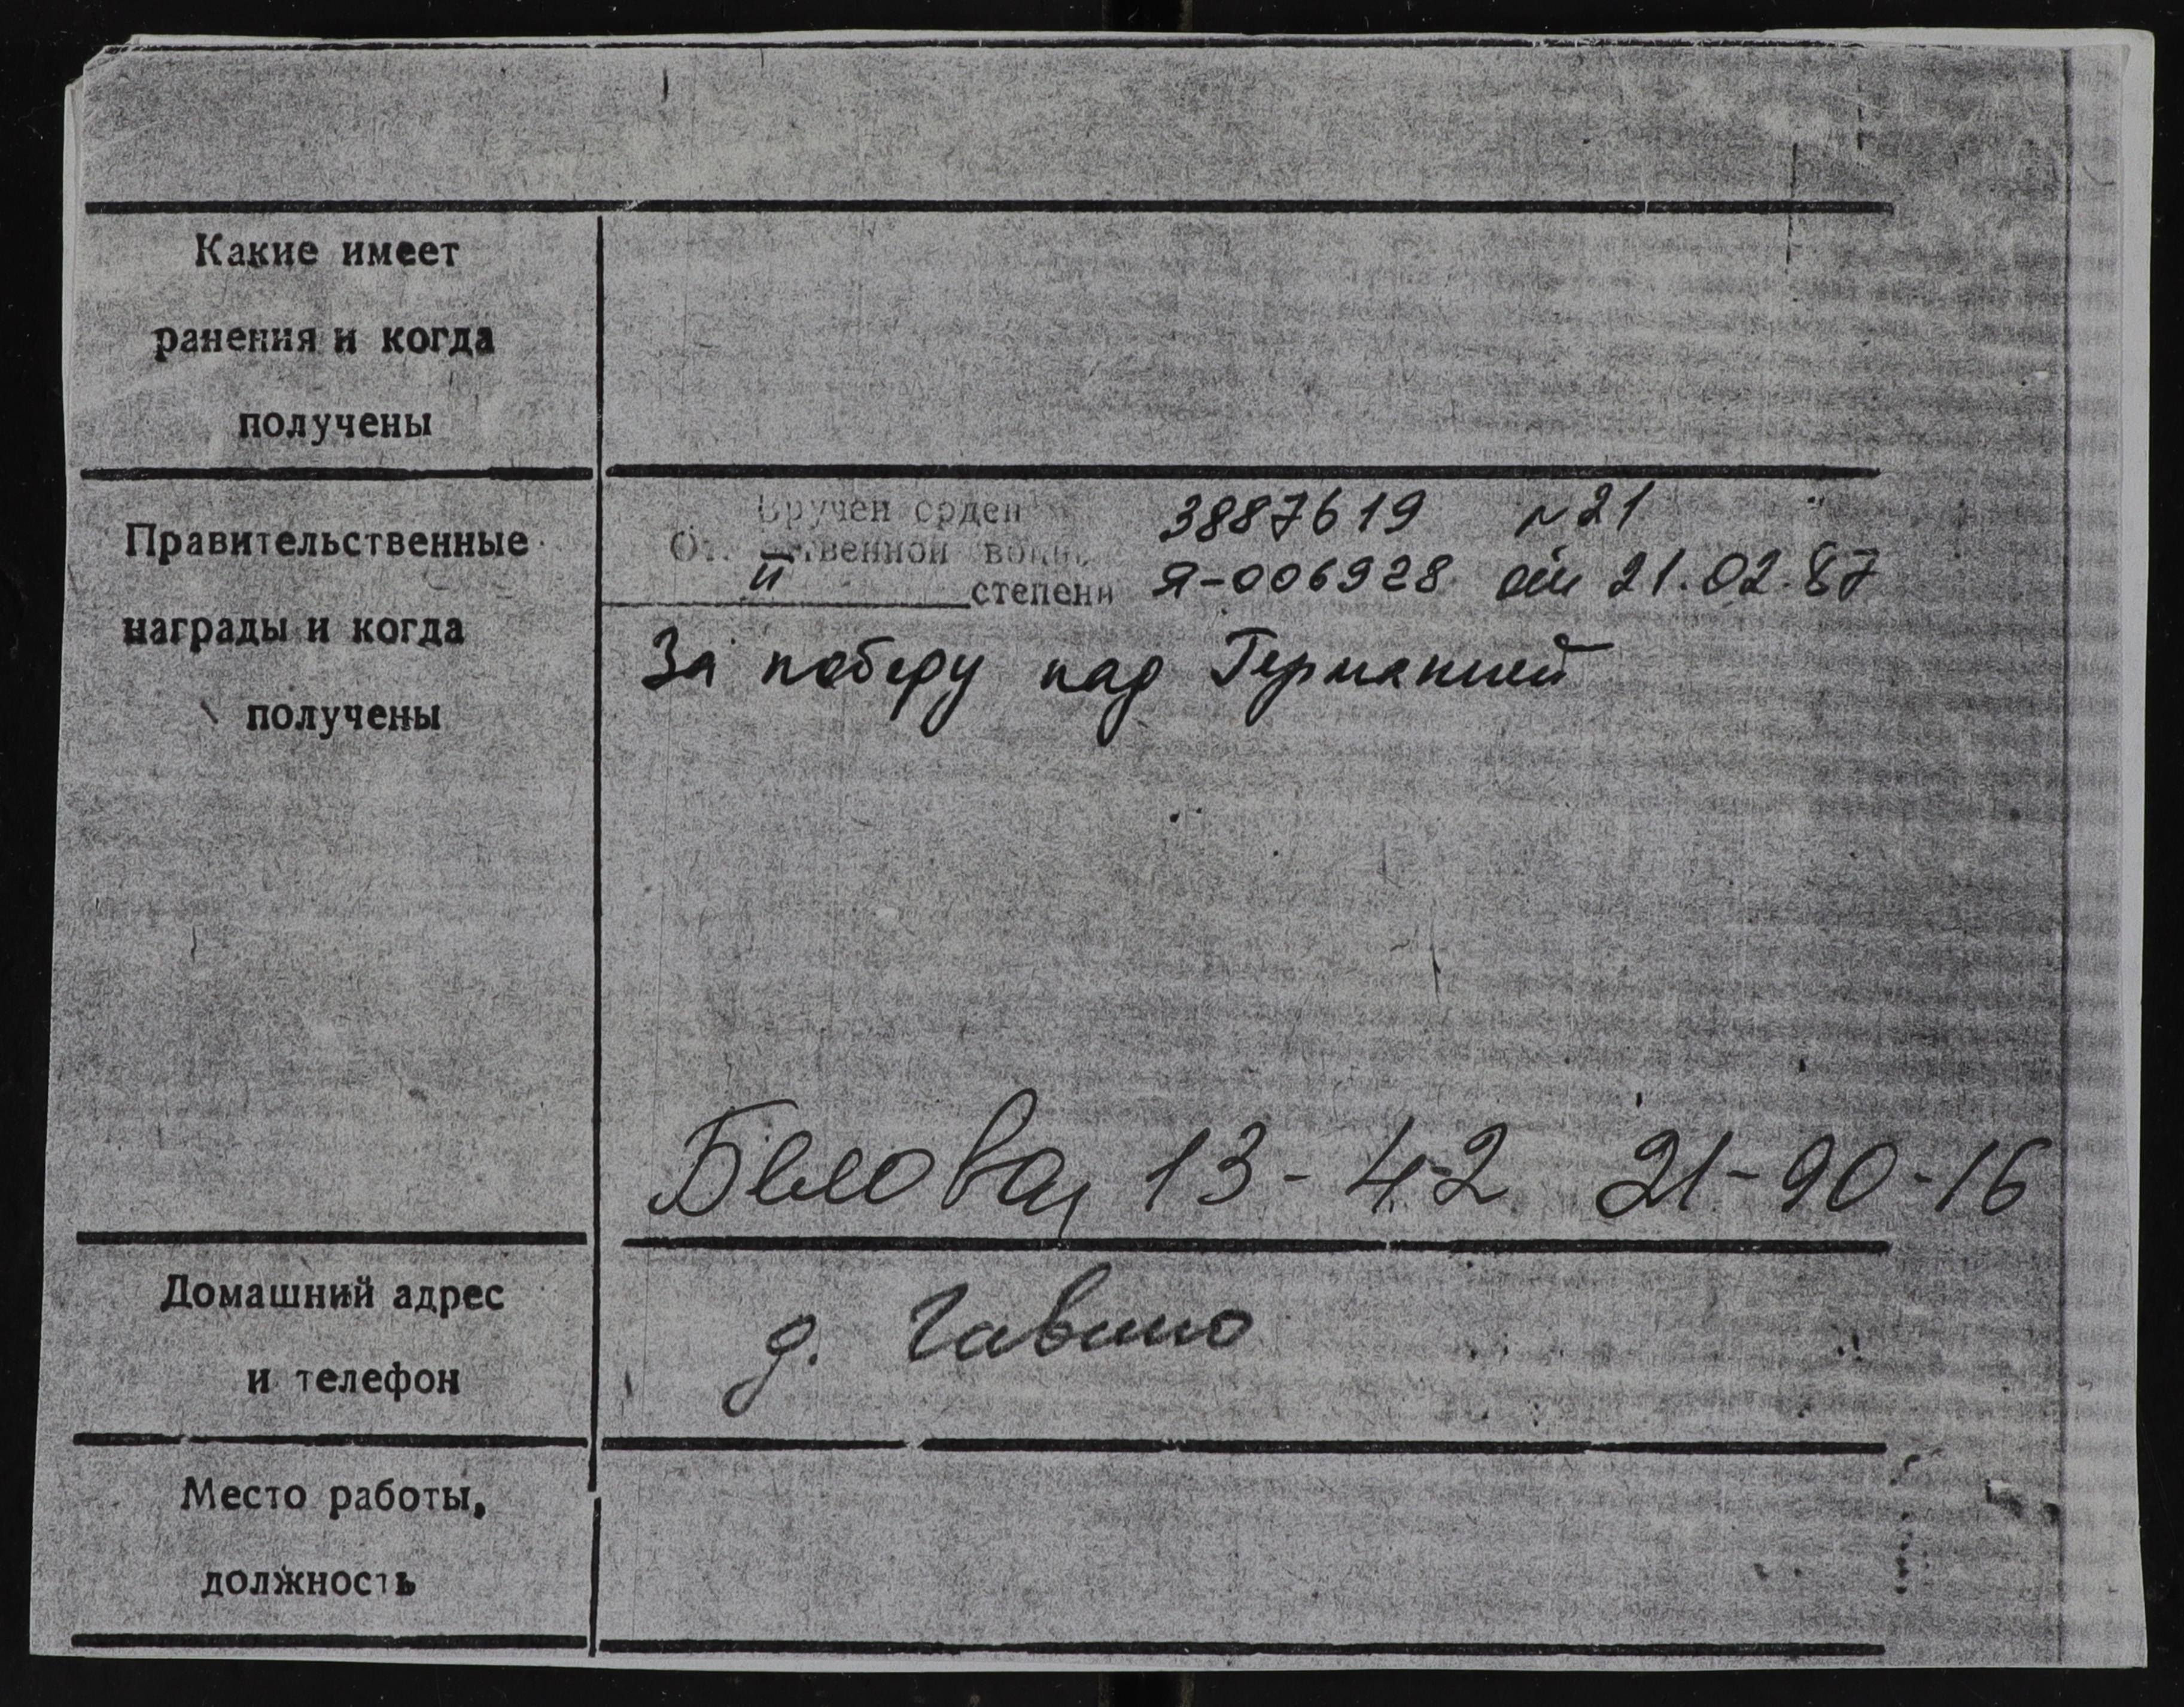 Какие имеет
ранения и когда
получены
Правительственные
награды и когда
получены
Вручен орден 3887619 №21
Отечественной войны
II степени Я-006928 от 21.02.87
За победу над Германией
Белова, 13-42 21-90-16
Домашний адрес
и телефон
д.
Место работы,
должность